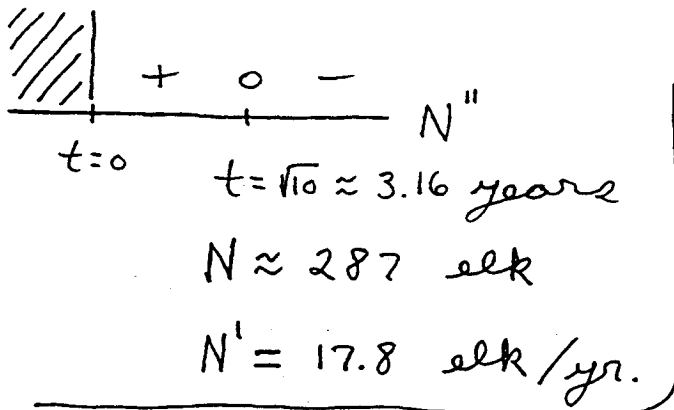 + 0 − N''
t=0
t=√10 ≈ 3.16 years
N ≈ 287 elk
N' = 17.8 elk/yr.